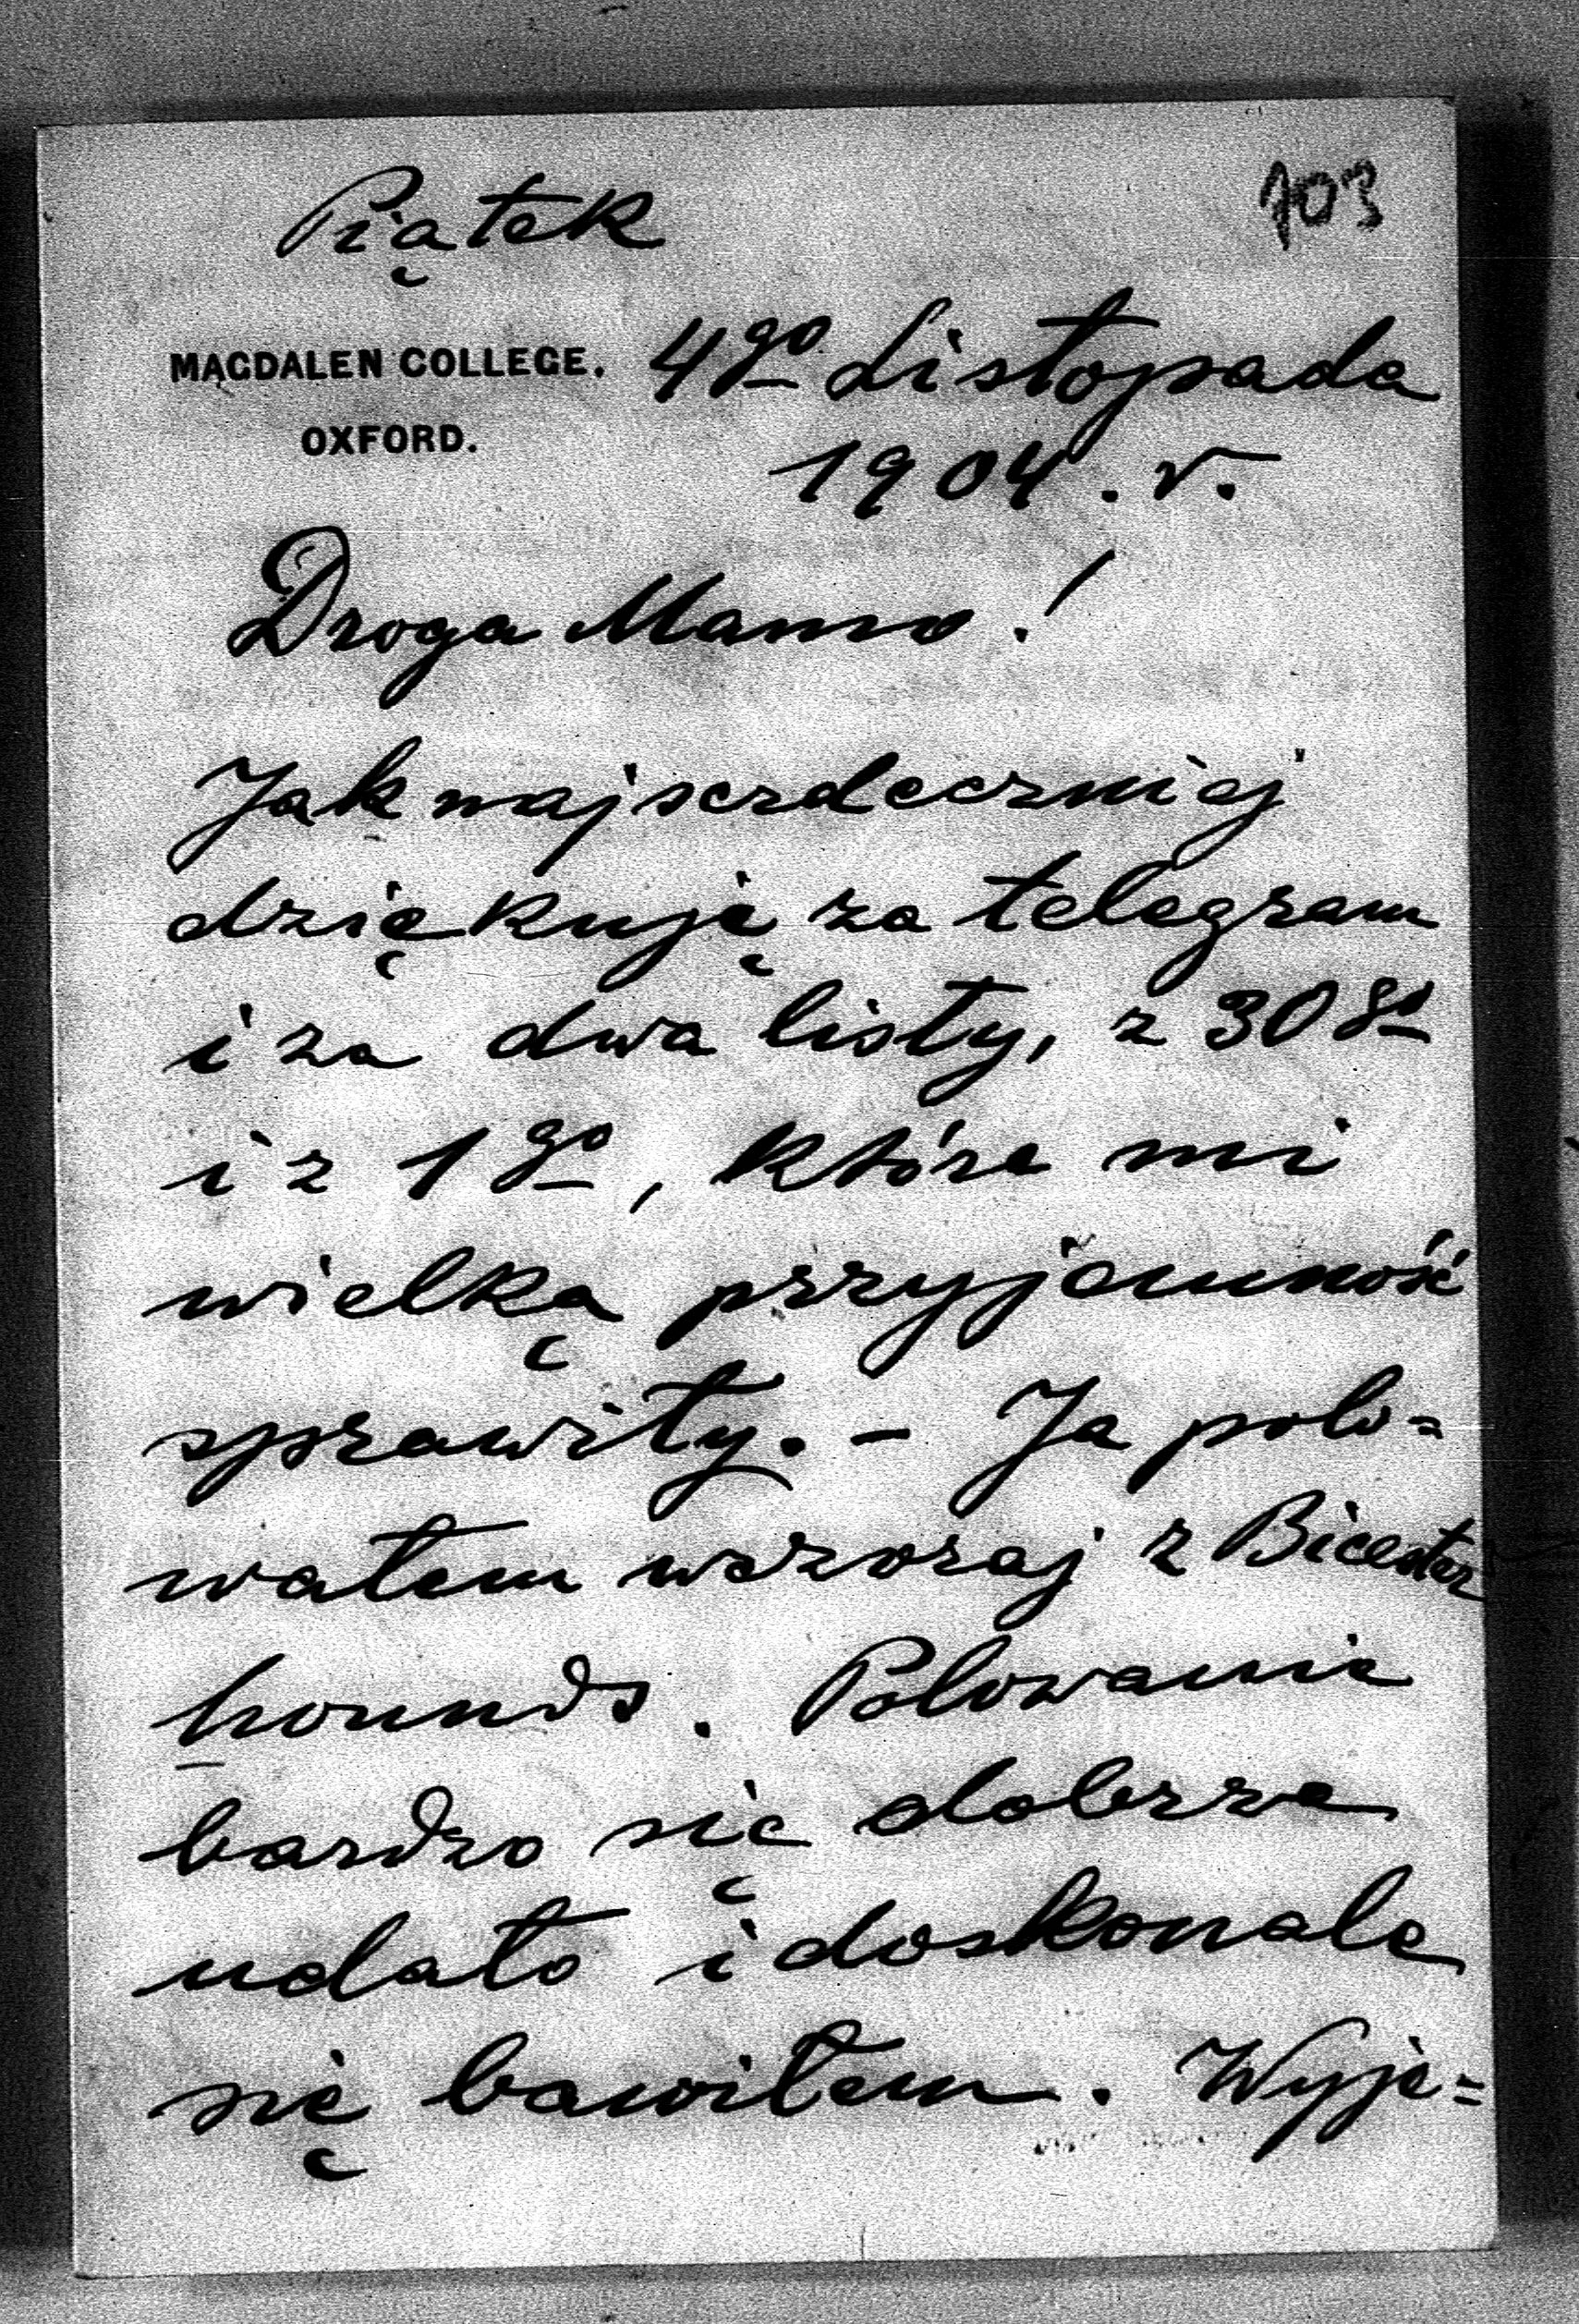 703
Piątek
MAGDALEN COLLEGE. 4go Listopada
OXFORD.
1904. r.
Droga Mamo!
Jak najserdeczniej
dziękuję za telegram
i za dwa listy, z 30go
i z 1go, które mi
wielką przyjemność
sprawiły. – Ja polo=
wałem wczoraj z Bicester
hounds. Polowanie
bardzo się dobrze
udało i doskonale
się bawiłem. Wyje=